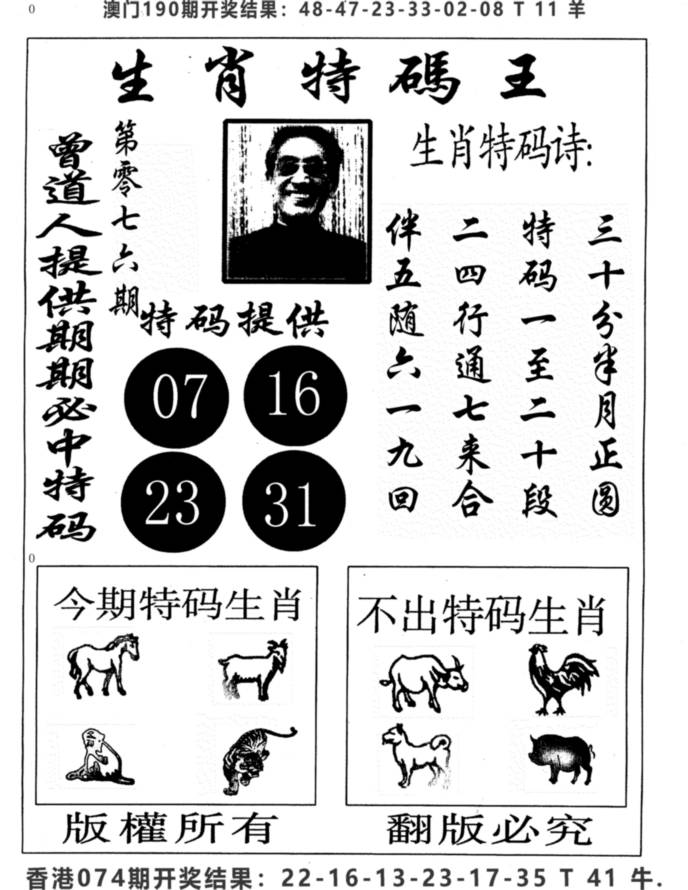 0
澳门190期开奖结果：48-47-23-33-02-08 T 11 羊
生肖特碼王
曾道人提供期期必中特码
第零七六期
生肖特码诗:
三十分半月正圆
特码一至二十段
二四行通七来合
伴五随六一九回
特码提供
07 16
23 31
0
今期特码生肖
不出特码生肖
版權所有
翻版必究
香港074期开奖结果：22-16-13-23-17-35 T 41 牛.